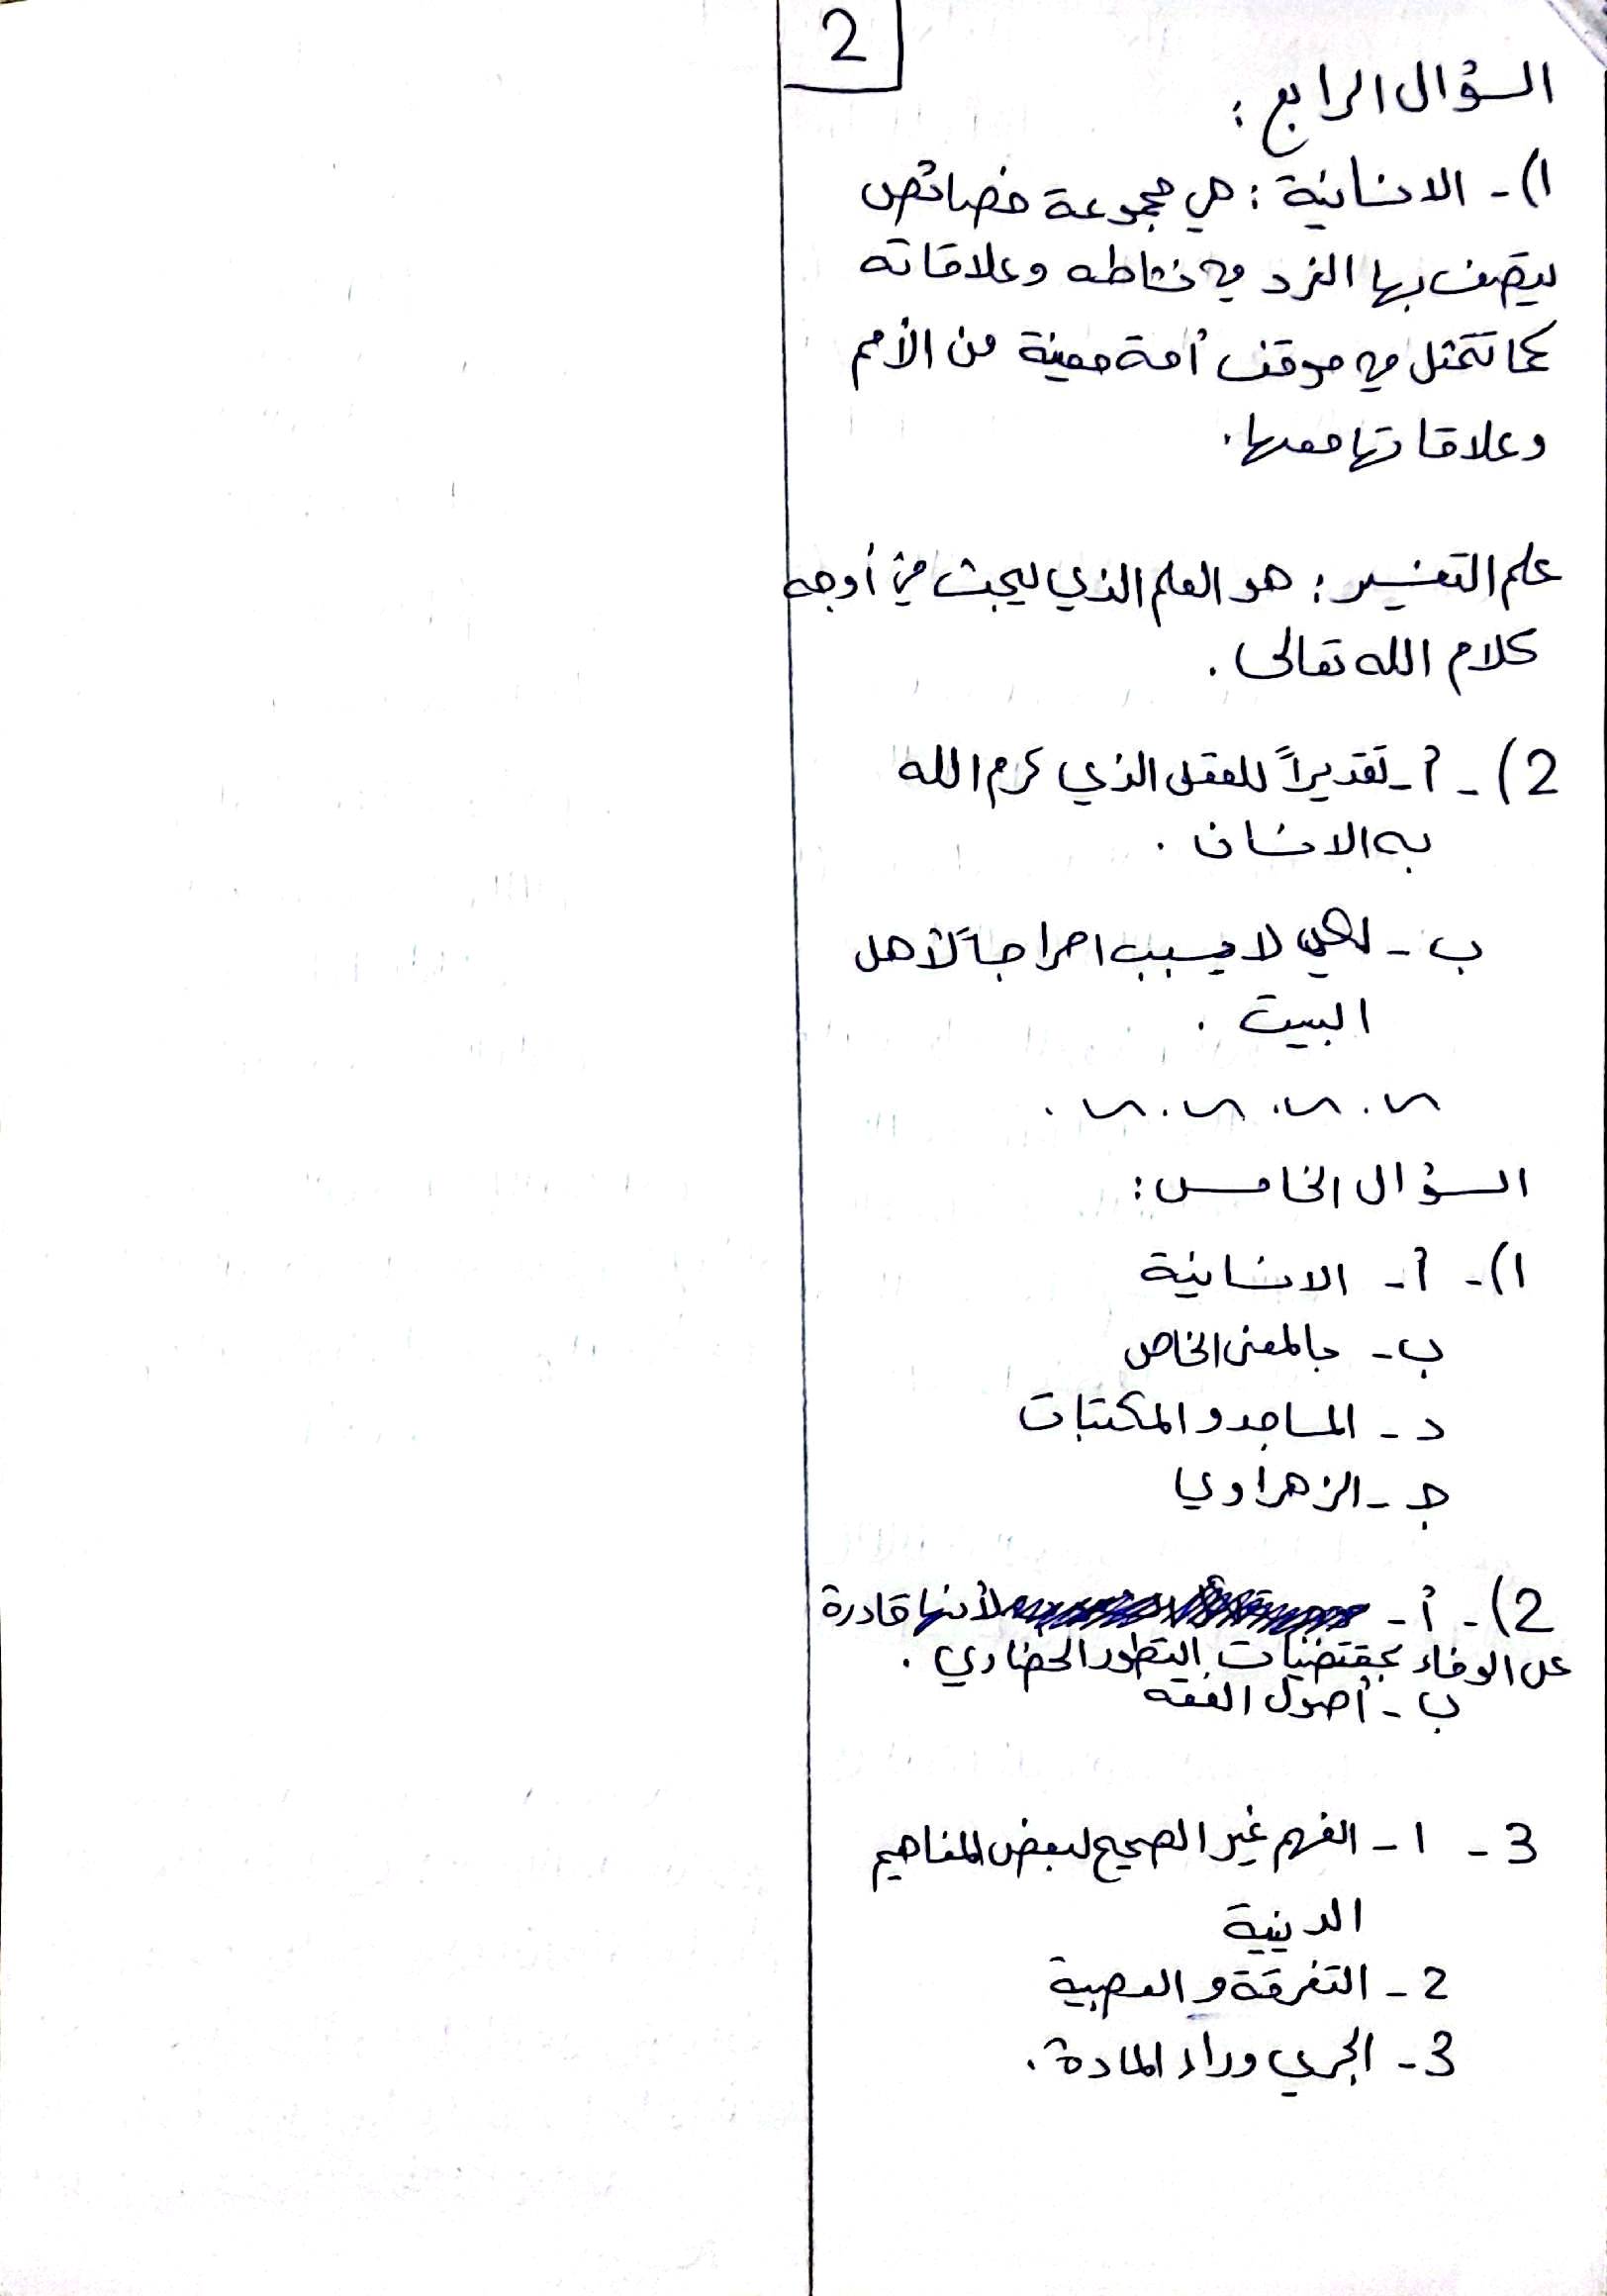 2
السؤال الرابع :
1) - الانسانية : هي مجموعة خصائص
يتصف بها الفرد في نشاطه وعلاقاته
كما تتمثل في موقف أمة معينة من الأمم
وعلاقاتها معها .
علم التفسير : هو العلم الذي يبحث في أوجه
كلام الله تعالى .
2) - أ - تقديراً للعقل الذي كرم الله
به الانسان .
ب - لكي لا يسبب احراجاً لأهل
البيت .
السؤال الخامس :
1) - أ - الانسانية
ب - بالمعنى الخاص
د - المساجد و المكتبات
ج - الزهراوي
2) - أ - لأنها قادرة
عل الوفاء بمقتضيات التطور الحضاري .
ب - أصول الفقه
3 - 1 - الفهم غير الصحيح لبعض المفاهيم
الدينية
2 - التفرقة و العصبية
3 - الجري وراء المادة .